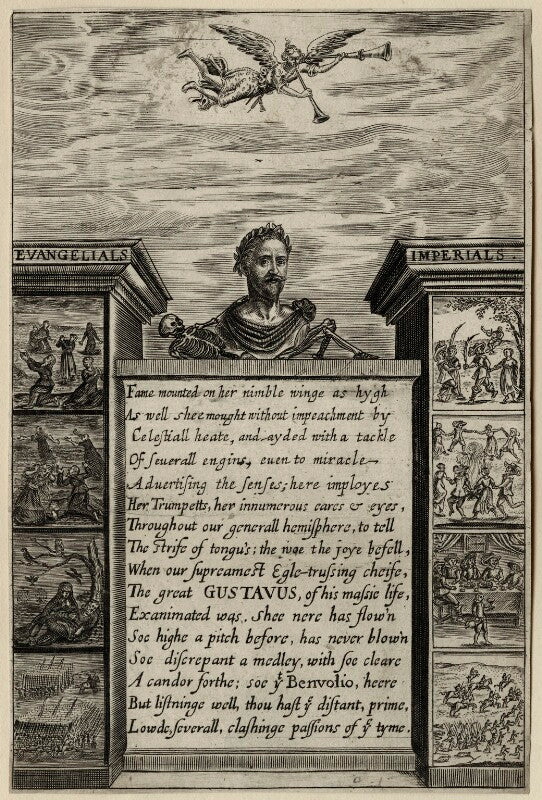 EVANGELIALS
IMPERIALS.
Fame mounted on her nimble winge as hygh
As well shee mought without impeachment by
Celestiall heate, and ayded with a tackle
Of seuerall engins, euen to miracle
Aduertising the senses; here imployes
Her Trumpetts, her innumerous eares & eyes,
Throughout our generall hemisphere, to tell
The strife of tongu's; the the joye befell,
When our supreamest Egle-trussing cheife,
The great GUSTAVUS, of his massie life,
Exanimated was. Shee nere has flow'n
Soe highe a pitch before, has never blow'n
Soe discrepant a medley, with soe cleare
A candor forthe; soe yͭ Benvolio, heere
But listninge well, thou hast yͤ distant, prime,
Lowde, severall, clashinge passions of yͤ tyme.